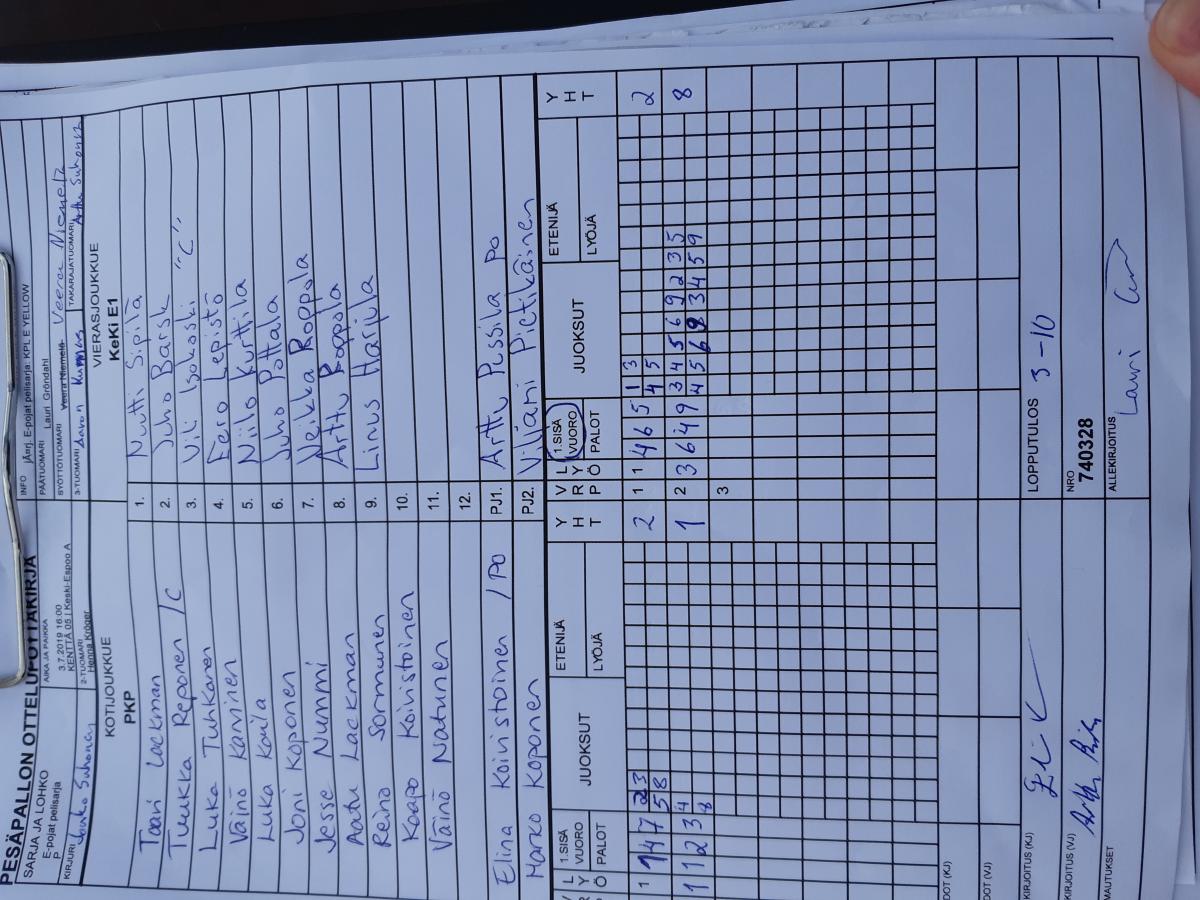 PESÄPALLON OTTELUPÖYTÄKIRJA
SARJA JA LOHKO
E-pojat pelisarja
P
AIKA JA PAIKKA
3.7.2019 16:00
KENTTÄ 05 / Keski-Espoo A
INFO
E-pojat pelisarja: KPL E YELLOW
PÄÄTUOMARI Lauri Gröndahl
SYÖTTÖTUOMARI Veera Niemelä
KIRJURI Jouko Suhonen
2-TUOMARI
Henna Kröger
3-TUOMARI
TAKARAJATUOMARI Arttu Suhonen
KOTIJOUKKUE
PKP
VIERASJOUKKUE
KeKi E1
Taavi Lackman 1. Nuutti Sipilä
Tuukka Reponen /C 2. Juho Barsk
Luka Tuhkanen 3. Vili Isokoski "C"
Väinö Karvinen 4. Eero Lepistö
Luka Kanila 5. Niilo Kurttila
Joni Koponen 6. Juho Pottala
Jesse Nummi 7. Neikka Roppola
Aatu Lackman 8. Arttu Roppola
Reino Sormunen 9. Linus Harjula
Kaapo Koivistoinen 10.
Väinö Natunen 11.
12.
Elina Koivistoinen /PO PJ1. Arttu Pessila po
Marko Koponen PJ2. Viljami Pietikäinen
V R P L Y Ö 1.SISÄ VUORO PALOT JUOKSUT ETENIJÄ LYÖJÄ Y H T V R P L Y Ö 1.SISÄ VUORO PALOT JUOKSUT ETENIJÄ LYÖJÄ Y H T
1 1 4 7 2 3 2 1 1 4 6 5 1 3 2
5 8 4 5
1 1 2 3 4 1 2 3 6 4 9 3 4 5 6 9 2 3 5 8
8 4 5 6 8 3 4 5 9
3
LOPPUTULOS 3-10
KIRJOITUS (KJ)
KIRJOITUS (VJ)
NRO
740328
ALLEKIRJOITUS
Lauri